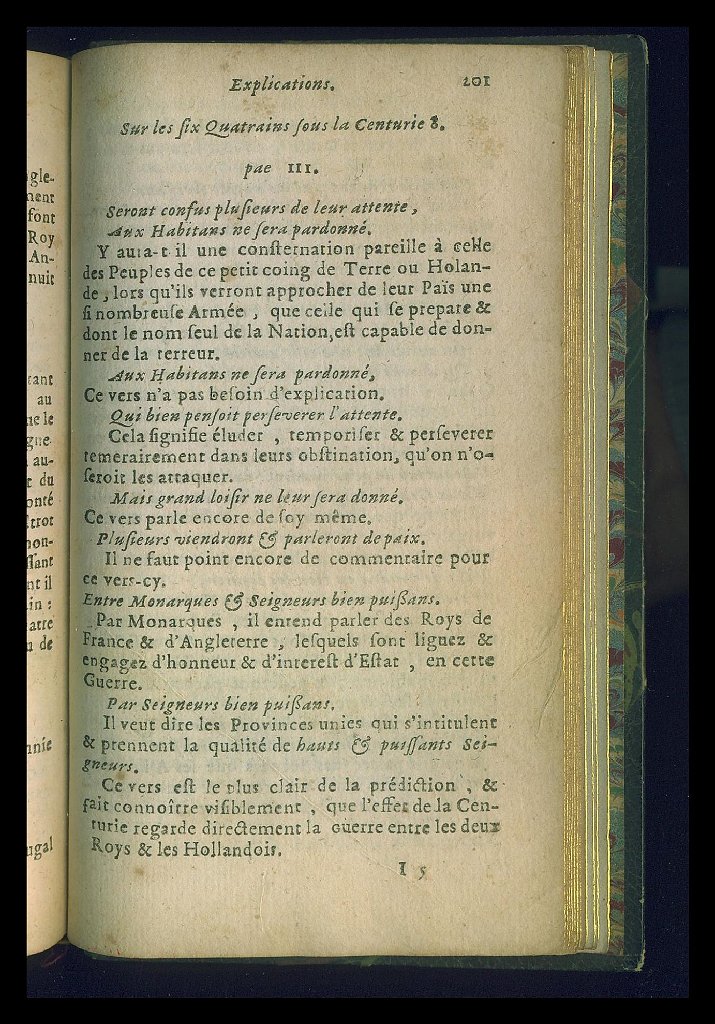 gle-
ment
font
Roy
An-
nuit
tant
au
ne le
gne
au-
t du
onté
non-
ssant
nt il
in :
atre
u de
nnie
ugal
Explications. 201
Sur les ſix Quatrains ſous la Centurie 8.
pae III.
Seront confus pluſieurs de leur attente,
Aux Habitans ne ſera pardonné.
Y aura-t-il une conſternation pareille à celle
des Peuples de ce petit coing de Terre ou Holan-
de, lors qu'ils verront approcher de leur Païs une
ſi nombreuſe Armée, que celle qui ſe prepare &
dont le nom ſeul de la Nation, eſt capable de don-
ner de la terreur.
Aux Habitans ne ſera pardonné,
Ce vers n'a pas beſoin d'explication.
Qui bien penſoit perſeverer l'attente.
Cela ſignifie éluder, temporiſer & perſeverer
temerairement dans leurs obſtination, qu'on n'o-
ſeroit les attaquer.
Mais grand loiſir ne leur ſera donné.
Ce vers parle encore de ſoy même.
Pluſieurs viendront & parleront de paix.
Il ne faut point encore de commentaire pour
ce vers-cy.
Entre Monarques & Seigneurs bien puißans.
Par Monarques, il entend parler des Roys de
France & d'Angleterre, leſquels ſont liguez &
engagez d'honneur & d'intereſt d'Eſtat, en cette
Guerre.
Par Seigneurs bien puißans.
Il veut dire les Provinces unies qui s'intitulent
& prennent la qualité de hauts & puiſſants Sei-
gneurs.
Ce vers eſt le plus clair de la prédiction, &
fait connoître viſiblement, que l'effet de la Cen-
turie regarde directement la Guerre entre les deux
Roys & les Hollandois.
I 5